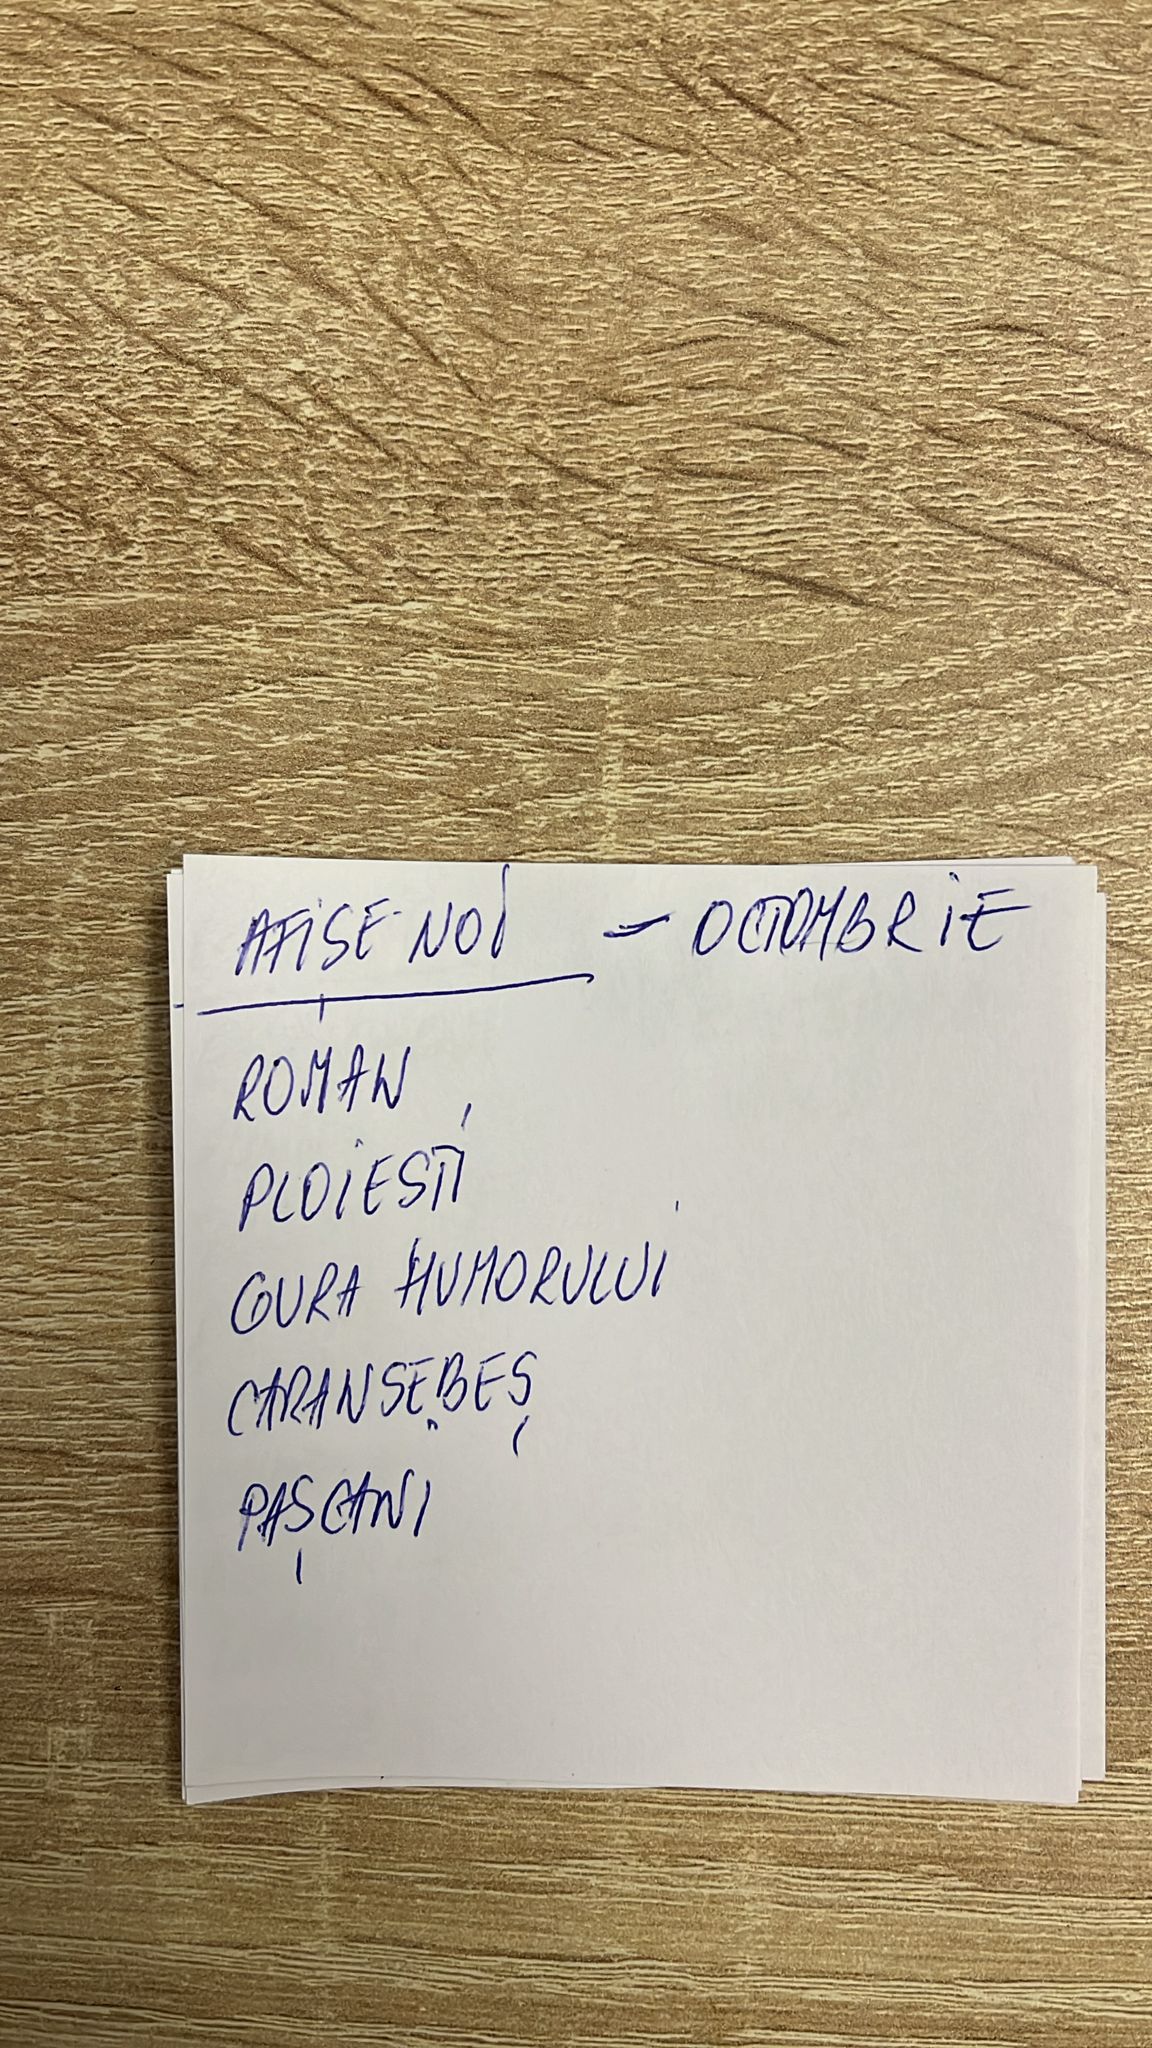 AFIȘE NOI - OCTOMBRIE
ROMAN
PLOIESTI
GURA HUMORULUI
CARANSEBEȘ
PAȘCANI